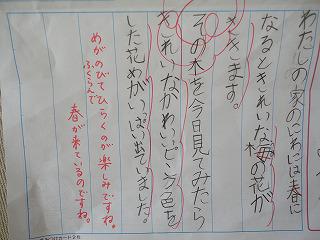 わたしの家のにわには春に
なるときれいな梅の花が
さきます。
その木を今日見てみたら
きれいなかわいどう色を
した花めがいっぱい出ていました。
めがのびてひらくのが楽しみですね。
ふくらんで
春が来ているのですね。